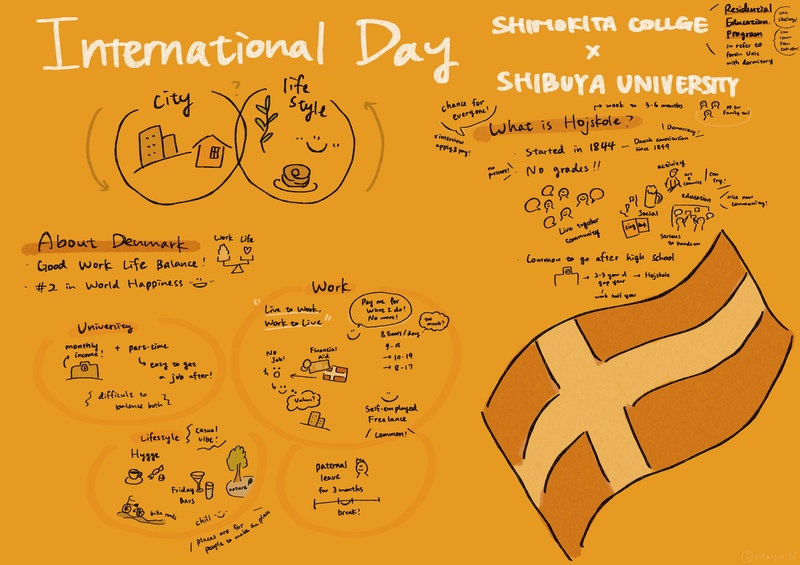 International Day
SHIMOKITA COLLGE
×
SHIBUYA UNIVERSITY
Residential
Education
Program
in refer to
with dormitory
?
city
life
style
About Denmark
· Good Work Life Balance!
· #2 in World Happiness
Work Life
University
monthly
income!
+ part-time
easy to get
a job after!
difficult to
balance both
Work
"Live to Work,
Work to Live"
Pay me for
What I do!
No more!
too
much?
8 hours/day
9-15
→ 10-19
→ 8-17
No
Job!
Financial
Aid
Values?
Self-employed
Freelance
common!
Lifestyle
casual
vibe!
Hygge
Friday
Bars
nature
bike roads
chill
places are for
people to make the place
paternal
leave
for 3 months
break!
chance for
everyone!
※interview
apply & pay!
→ week to 5-6 months
What is Hojskole?
· Started in 1844 — Danish constitution
since 1849
Democracy
no
pressure!
· No grades!!
Live together
community
activity
can
try!
Social
sing
education
nice new
community!
serious
to hands-on
· Common to go after high school
→ 2-3 year of → Hojskole
gap year
work half year